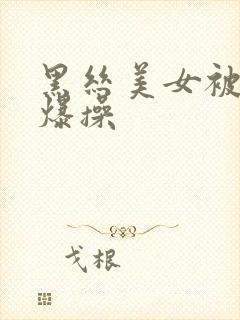 黑丝美女被
爆操
戈根